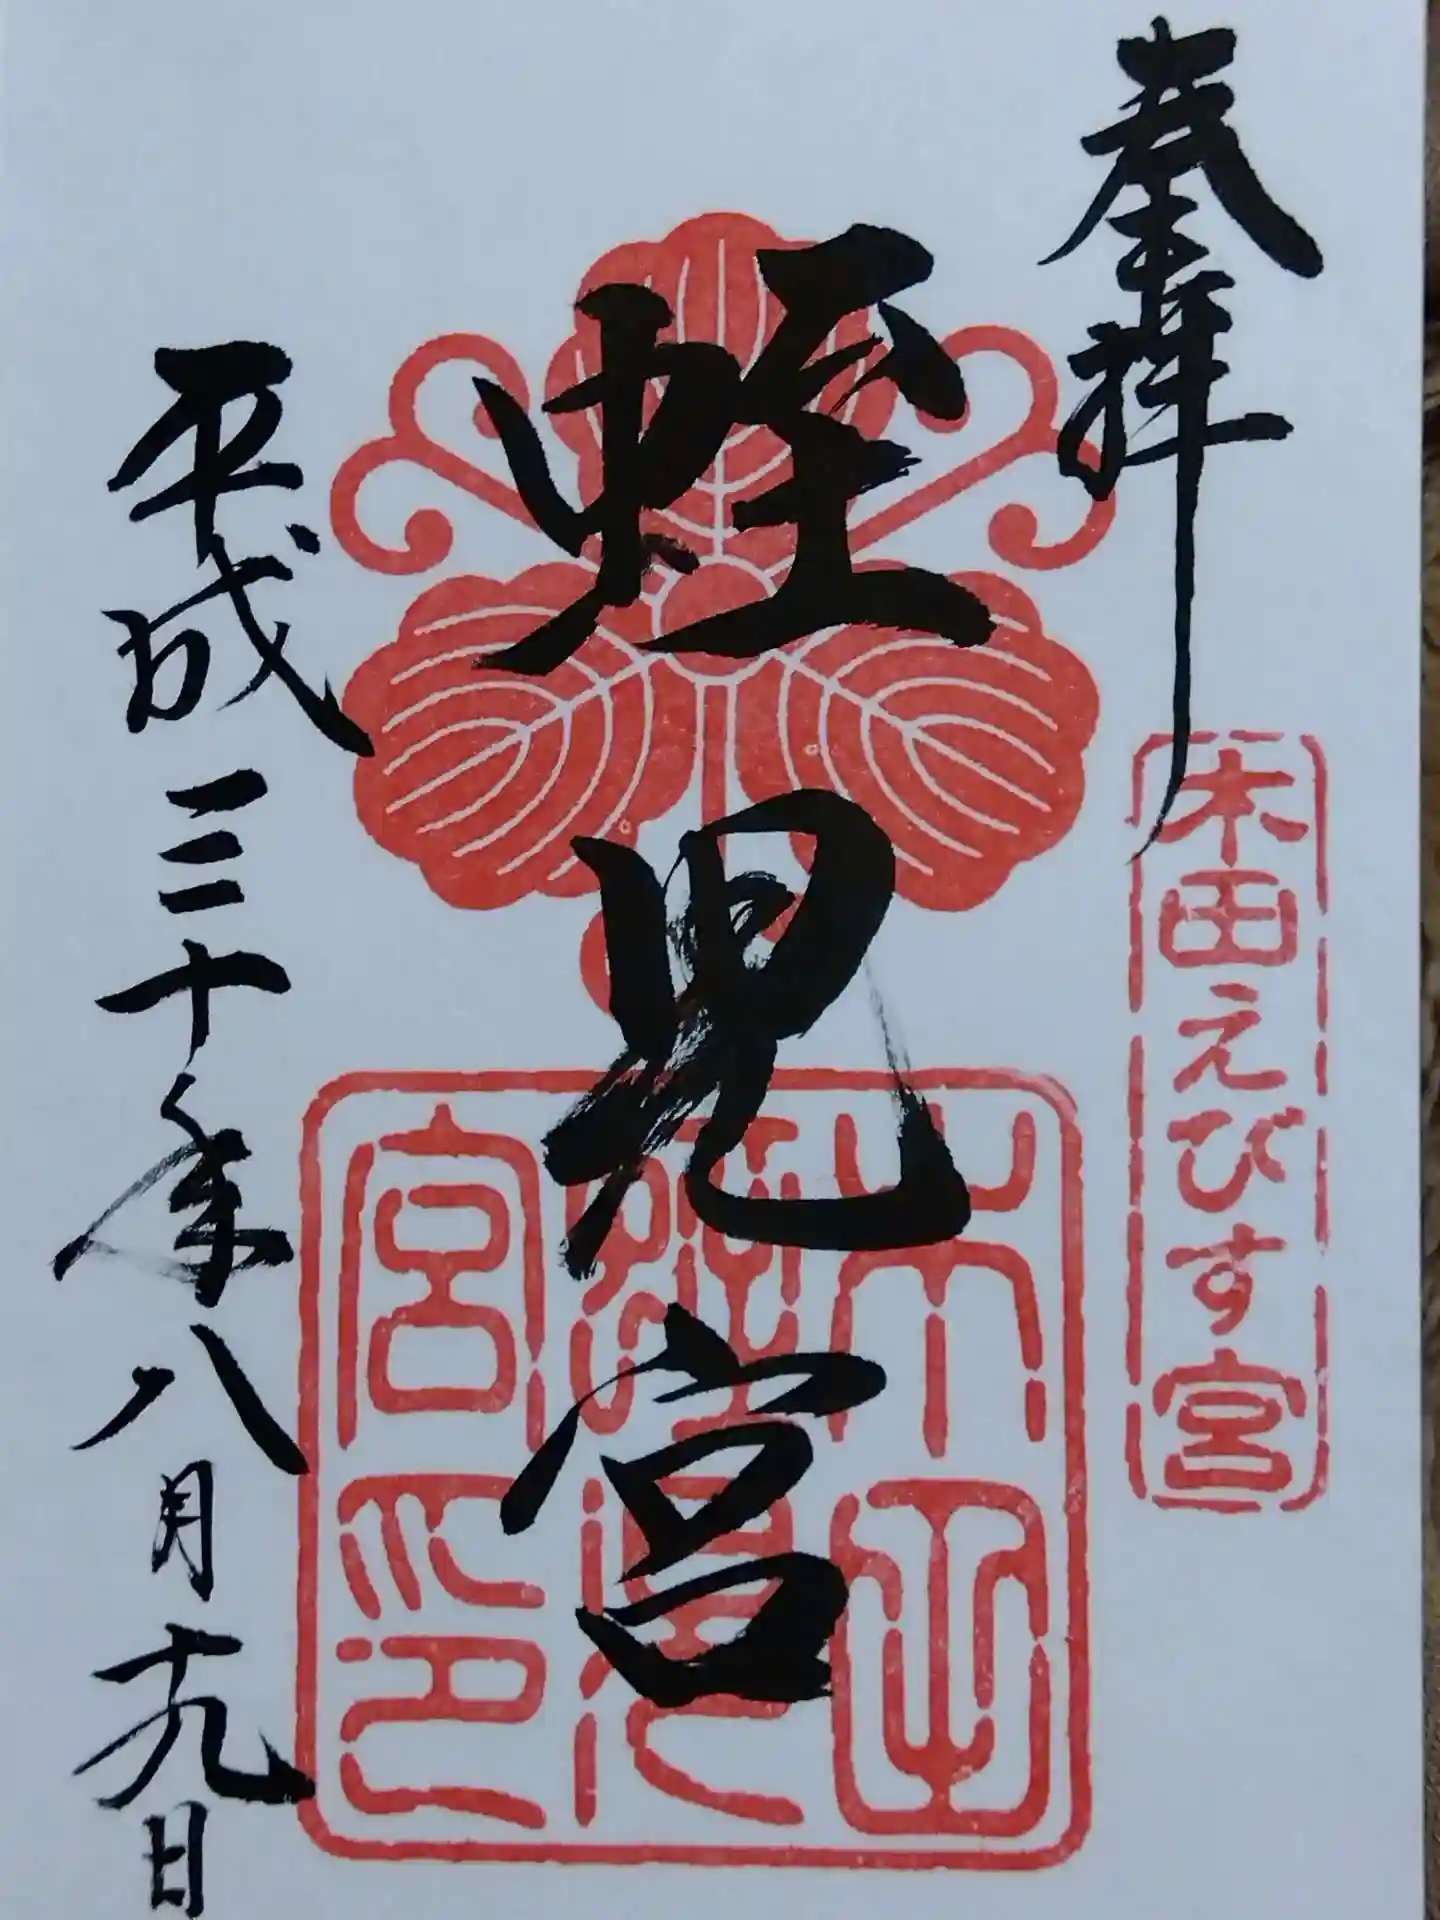 奉拝
本田えびす宮
蛭児宮
平成三十年八月十九日